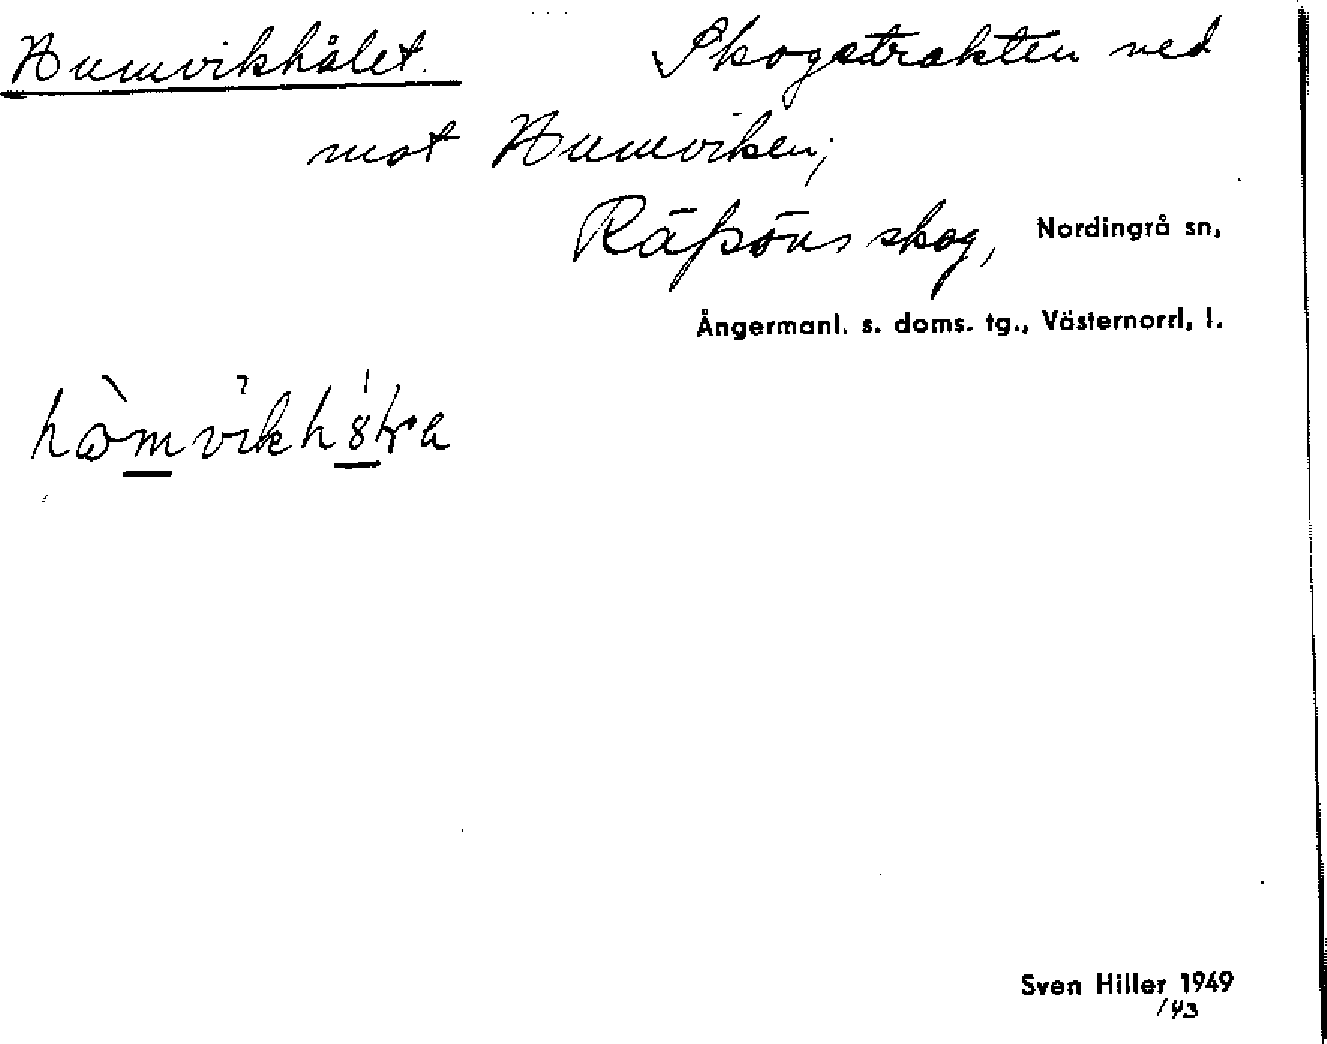 Humvikhålet. Skogstrakten ned
mot Humviken,
Räfsöns skog, Nordingrå sn,
Ångermanl. s. doms. tg., Västernorrl, l.
Sven Hiller 1949
/43